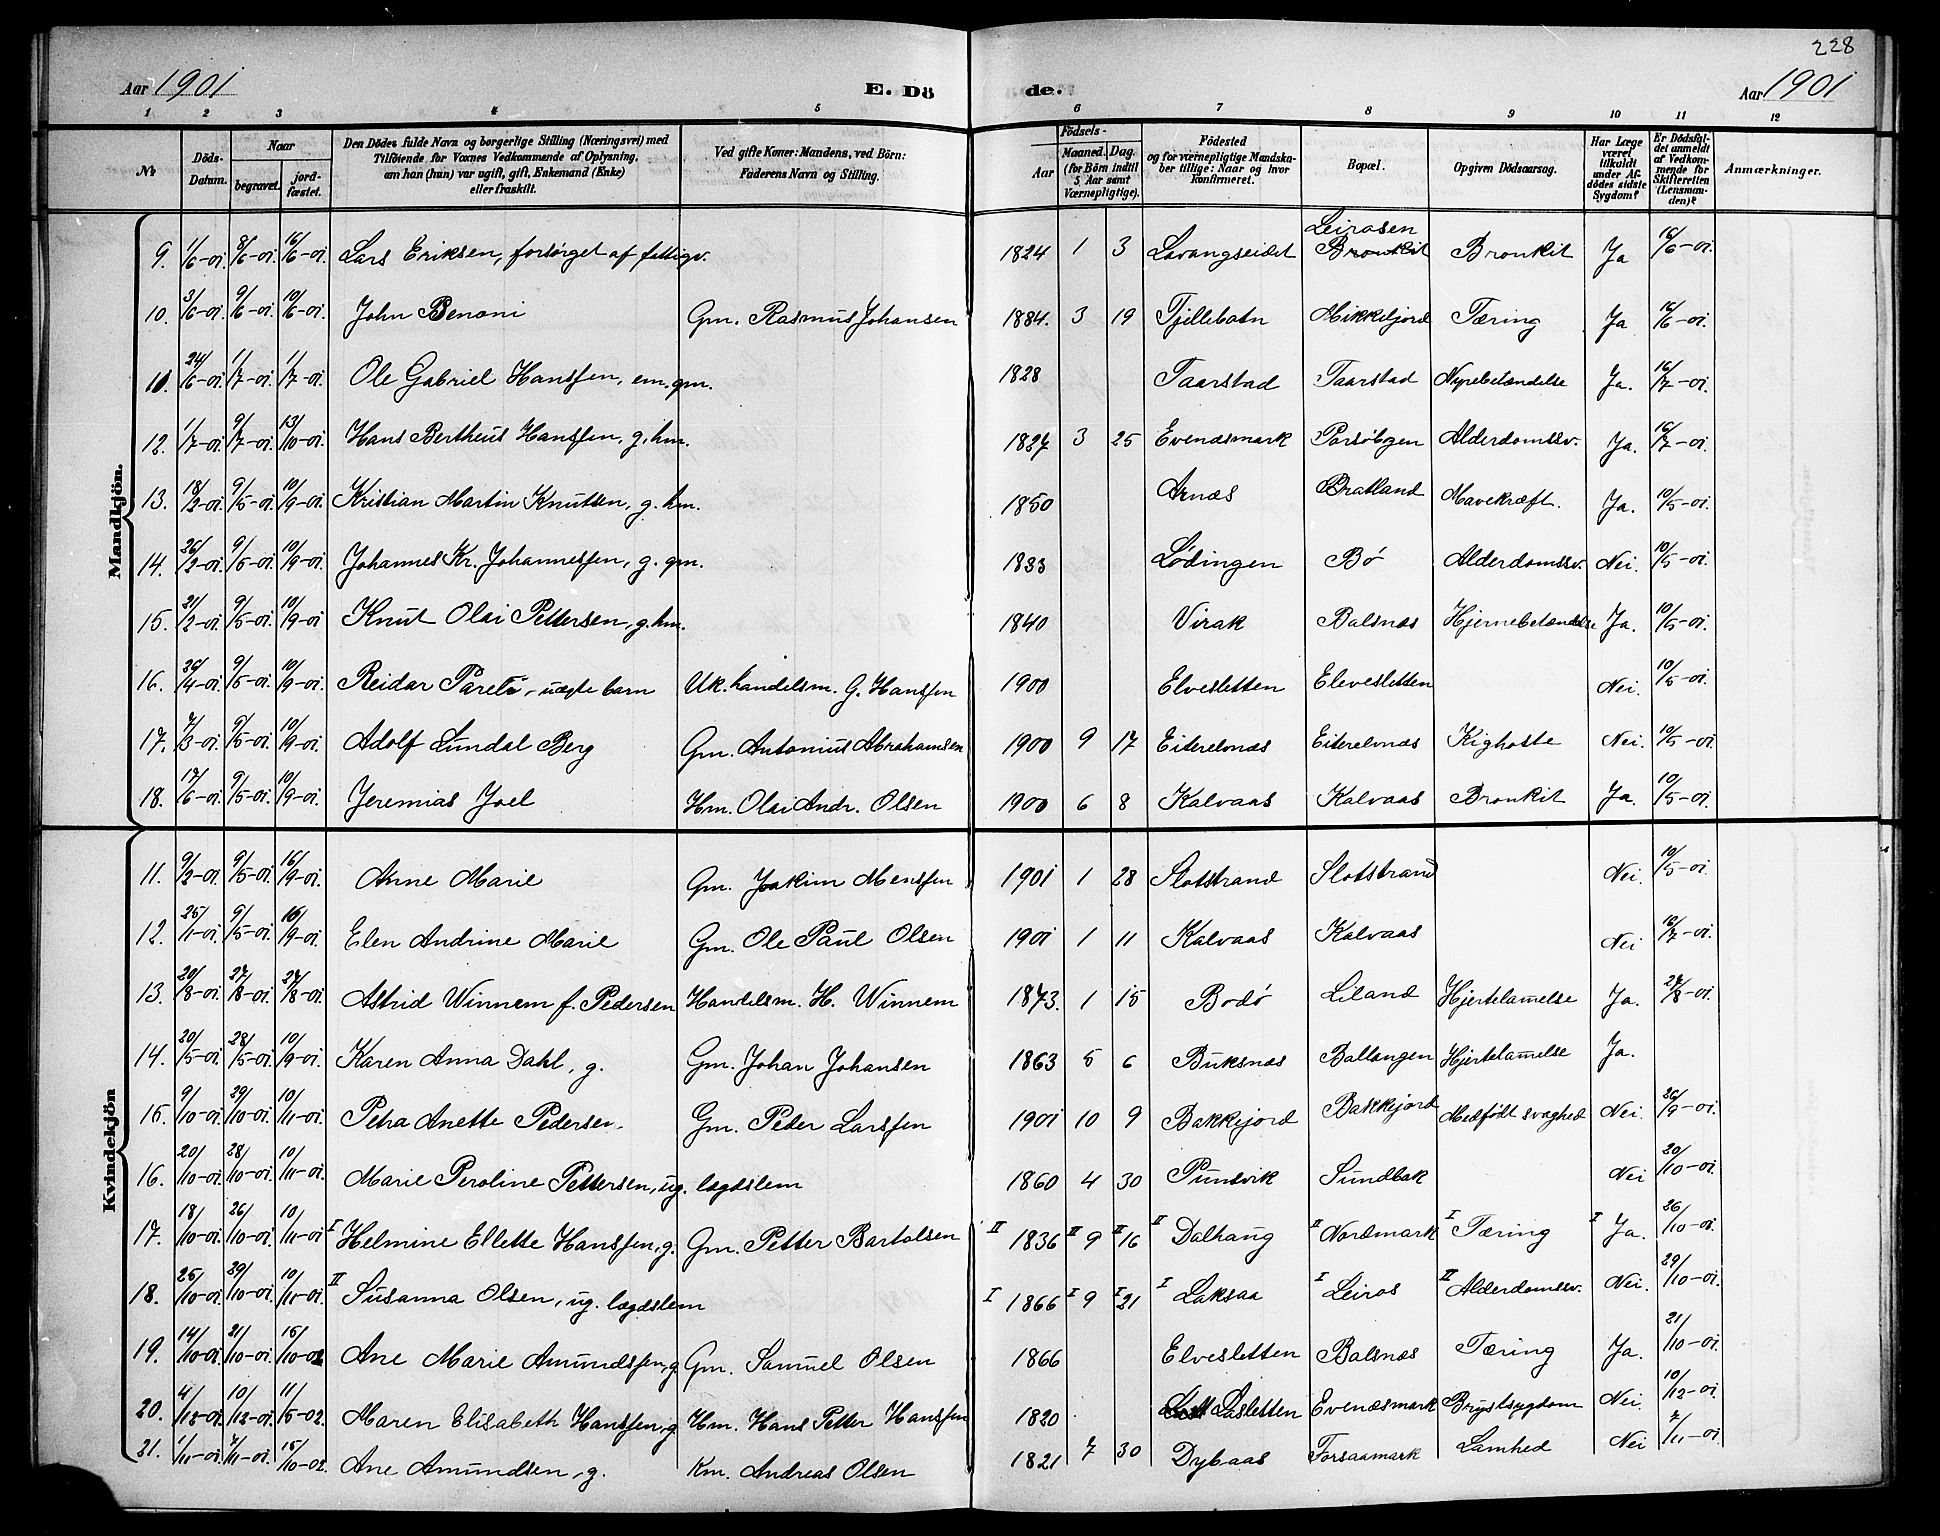 228
Aar 1901 E. Dö de. Aar 1901
1 2 3 4 5 6 7 8 9 10 11 12
No. Döds-Datum. Naar begravet. jordfæstet. Den Dödes fulde Navn og borgerlige Stilling (Næringsvei) med Tilföiende for Voxnes Vedkommende af Oplysning, om han (hun) var ugift, gift, Enkemand (Enke) eller fraskilt. Ved gifte Koner: Mandens, ved Börn: Faderens Navn og Stilling. Födsels- Aar Maaned. Dag. (for Börn indtil 5 Aar samt Værnepligtige). Födested og for værnepligtige Mandskaber tillige: Naar og hvor Konfirmeret. Bopæl. Opgiven Dödsaarsag. Har Læge været tilkaldt under Afdödes sidste Sygdom? Er Dödsfaldet anmeldt af Vedkommende for Skifteretten (Lensmanden)? Anmærkninger.
Mandkjön.
9. 1/6-01. 8/6-01. 16/6-01. Lars Eriksen, forsörget af fattigv. 1824 1 3 Lavangseidet Leirosen Bronkit Bronkit Ja 16/6-01.
10. 3/6-01. 9/6-01. 10/6-01. John Benoni Gm. Rasmus Johansen 1884. 3 19 Tjillebotn Mikkefjord Tæring Ja 16/6-01.
10. 24/6-01. 1/7-01. 1/7-01. Ole Gabriel Hanssen, em. gm. 1828 Taarstad Taarstad Nyrebetændelse Ja. 16/7-01.
12. 1/7-01. 9/7-01. 13/10-01. Hans Bertheus Hanssen, g. hm. 1827 3 25 Evenæsmark Porsöbgen Alderdomssv. Ja. 16/7-01.
13. 18/2-01. 9/5-01. 10/9-01. Kristian Martin Knutsen, g. hm. 1850 Arnæs Bratland Mavekræft. Ja. 10/5-01.
14. 26/2-01. 9/5-01. 10/9-01. Johannes Kr. Johannessen, g. gm. 1833 Lödingen Bö Alderdomssv. Nei. 10/5-01.
15. 21/2-01. 9/5-01. 10/9-01 Knut Olai Pettersen, g. hm. 1840 Virak Balsnæs Hjernebetændelse Ja. 10/5-01.
16. 26/4-01. 9/5-01. 10/9-01. Reidar Pareli, uægte barn Uk. handelsm. G. Hanssen 1900 Elvesletten Elevesletten Nei. 10/5-01.
17. 7/3-01. 9/5-01. 10/9-01. Adolf Lundal Berg Gm. Antonius Abrahamsen 1900 9 17 Eiterelvnæs Eiterelvnæs Kighoste Nei. 10/5-01
18. 17/6-01. 9/5-01. 10/9-01. Jeremias Joel Hm. Olai Andr. Olsen 1900 6 8 Kalvaas Kalvaas Bronkit Ja. 10/5-01.
Kvindekjön
11. 9/2-01. 9/5-01. 16/9-01. Anne Marie Gm. Joakim Menssen 1901 1 28 Slotstrand Slotstrand Nei. 10/5-01.
12. 25/1-01. 9/5-01. 16/9-01. Elen Andrine Marie Gm. Ole Paul Olsen 1901 1 11 Kalvaas Kalvaas Nei 16/7-01.
13. 20/8-01. 27/8-01. 27/8-01. Astrid Winnem f. Pedersen Handelsm. H. Winnem 1873. 1 15 Bodö Liland Hjertelamelse Ja. 27/8-01.
14. 20/5-01. 28/5-01. 10/9-01. Karen Anna Dahl, g. Gm. Johan Johansen 1863 5 6 Buksnæs Ballangen Hjertelamelse Ja.
15. 9/10-01. 29/10-01. 10/11-01. Petra Anette Pedersen. Gm. Peder Larssen 1901 10 9 Bakkejord Bakkejord Medfödt svaghed Nei. 26/9-01.
16. 20/10-01. 28/10-01. 10/11-01. Marie Peroline Pettersen, ug. lægdslem 1860 4 30 Punsvik Sundbak Nei 20/10-01.
17. 18/10-01. 26/10-01. 10/11-01 I Helmine Ellette Hanssen, g. Gm. Petter Bartolsen II 1836 II 9 II 16 II Dalhaug II Nordmark I Tæring I Ja. 26/10-01.
18. 25/10-01. 29/10-01. 10/11-01. II Susanna Olsen, ug. lægdslem I 1866 I 9 I 21 I Laksaa I Leiros II Alderdomssv. Nei. 29/10-01.
19. 14/10-01 21/10-01. 15/10-02 Ane Marie Amundssen, g. Gm. Samuel Olsen 1866 Elvesletten Balsnæs Tæring Ja. 21/10-01.
20. 4/12-01. 10/12-01. 11/5-02. Maren Elisabeth Hanssen, g. Hm. Hans Petter Hanssen 1820 Lasletten Evenæsmark Brystsygdom Nei. 10/12-01.
21. 1/11-01. 7/11-01. 15/10-02. Ane Amundsen, g. Km. Andreas Olsen 1821 7 30 Dybaas Forsaamark Lamhed Nei 7/11-01.